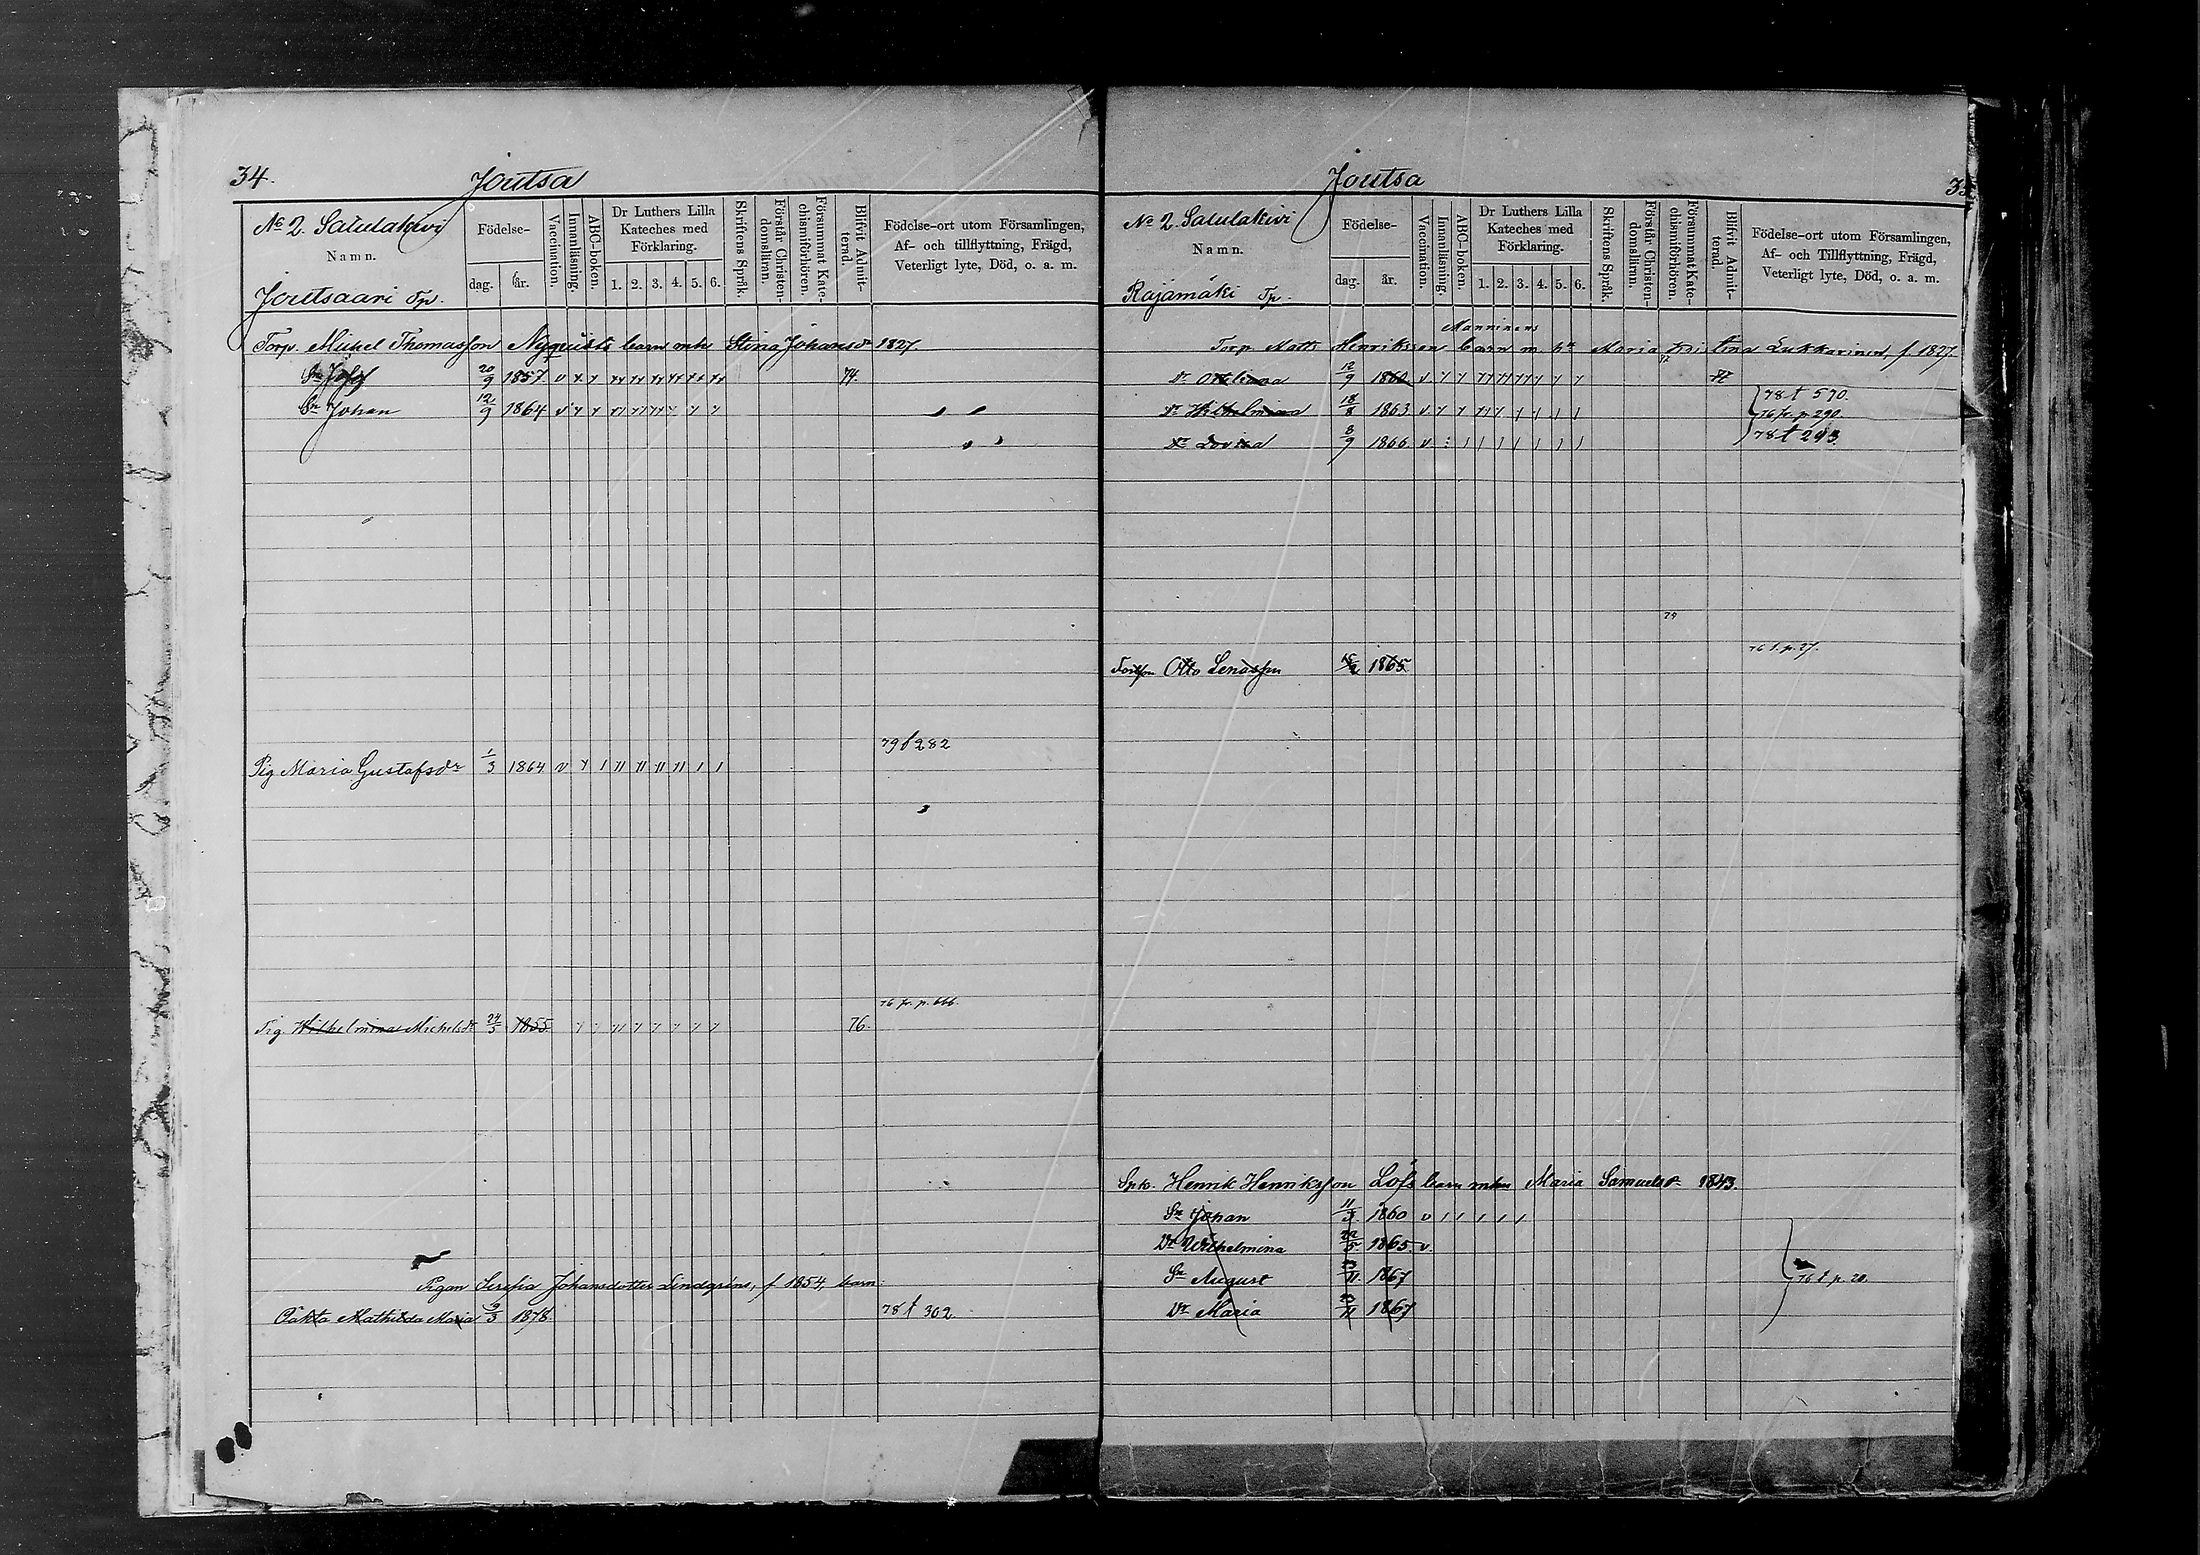 34.
Joutsa
No 2. Salulakivi
Namn.
Joutsaari Tp.
Födelse-
dag.
år.
Vaccination.
Innanläsning.
ABC-boken.
Dr Luthers Lilla Kateches med Förklaring.
1. 2. 3. 4. 5. 6.
Skriftens Språk.
Förstår Christendomsläran.
Försummat Katechismiförhören.
Blifvit Admitterad.
Födelse-ort utom Församlingen,
Af- och tillflyttning, Frägd,
Veterligt lyte, Död, o. a. m.
Torp. Mickel Thomasson Nyquists barn m hu Stina Johansdr 1827
Sn Josef 20/9 1857 v 74.
Sn Johan 12/9 1864 v
79 f 282
Pig Maria Gustafsdr 1/3 1864 v
76 fr. p. 666.
Pig. Wilhelmina Michelsdr 24/5 1855 76.
Pigan Serafia Johansdotter Lindgrens, f 1854, barn
Oäkta Mathilda Maria 9/3 1878. 78 f 302
Joutsa
No 2. Salulakivi
Namn.
Rajamäki Tp.
Födelse-
dag.
år.
Vaccination.
Innanläsning.
ABC-boken.
Dr Luthers Lilla Kateches med Förklaring.
1. 2. 3. 4. 5. 6.
Skriftens Språk.
Förstår Christendomsläran.
Försummat Katechismiförhören.
Blifvit Admitterad.
Födelse-ort utom Församlingen,
Af- och Tillflyttning, Frägd,
Veterligt lyte, Död, o. a. m.
Manninens
Torp Matts Henriksson barn m. hu Maria Kristina Lukkarinen, f. 1827
Dr Ottiliana 12/9 1860 v 77
78 f 570.
Dr Wilhelmina 18/8 1863 v 76 fr. p. 290.
Dr Lovisa 8/9 1866 v 78 f 293.
76 f. p. 27.
Otto Lenasson 1865
Henrik Henriksson Löfs barn m hu Maria Samuelsdr 1843.
Sn Johan 11/3 1860 v
Dr Wilhelmina 22/5 1865 v.
Sn August 23/11 1867 76 f p. 20.
Dr Maria 23/11 1867